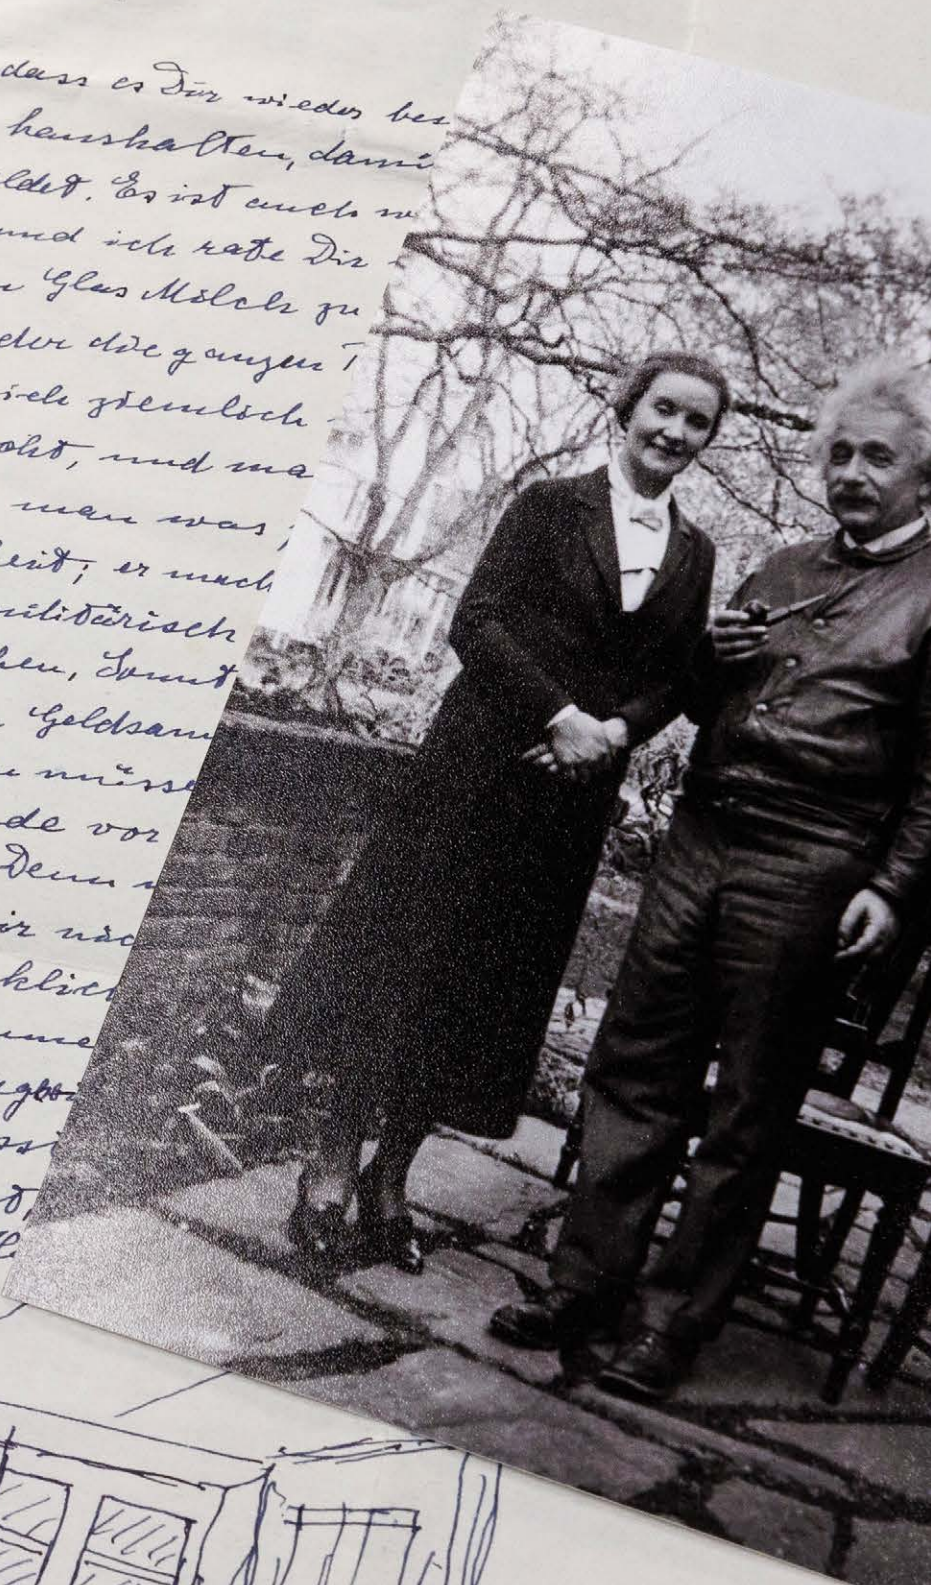 dass es Dir wieder bes
haushalten, dami
ldet. Es ist auch
und ich rate Dir
Glas Milch zu
der die ganzen
ich ziemlich
oht, und ma
man was
eit; er mach
militärisch
hen, Sonnt
Geldsam
müsse
de vor
Denn
ir näc
klich
mme